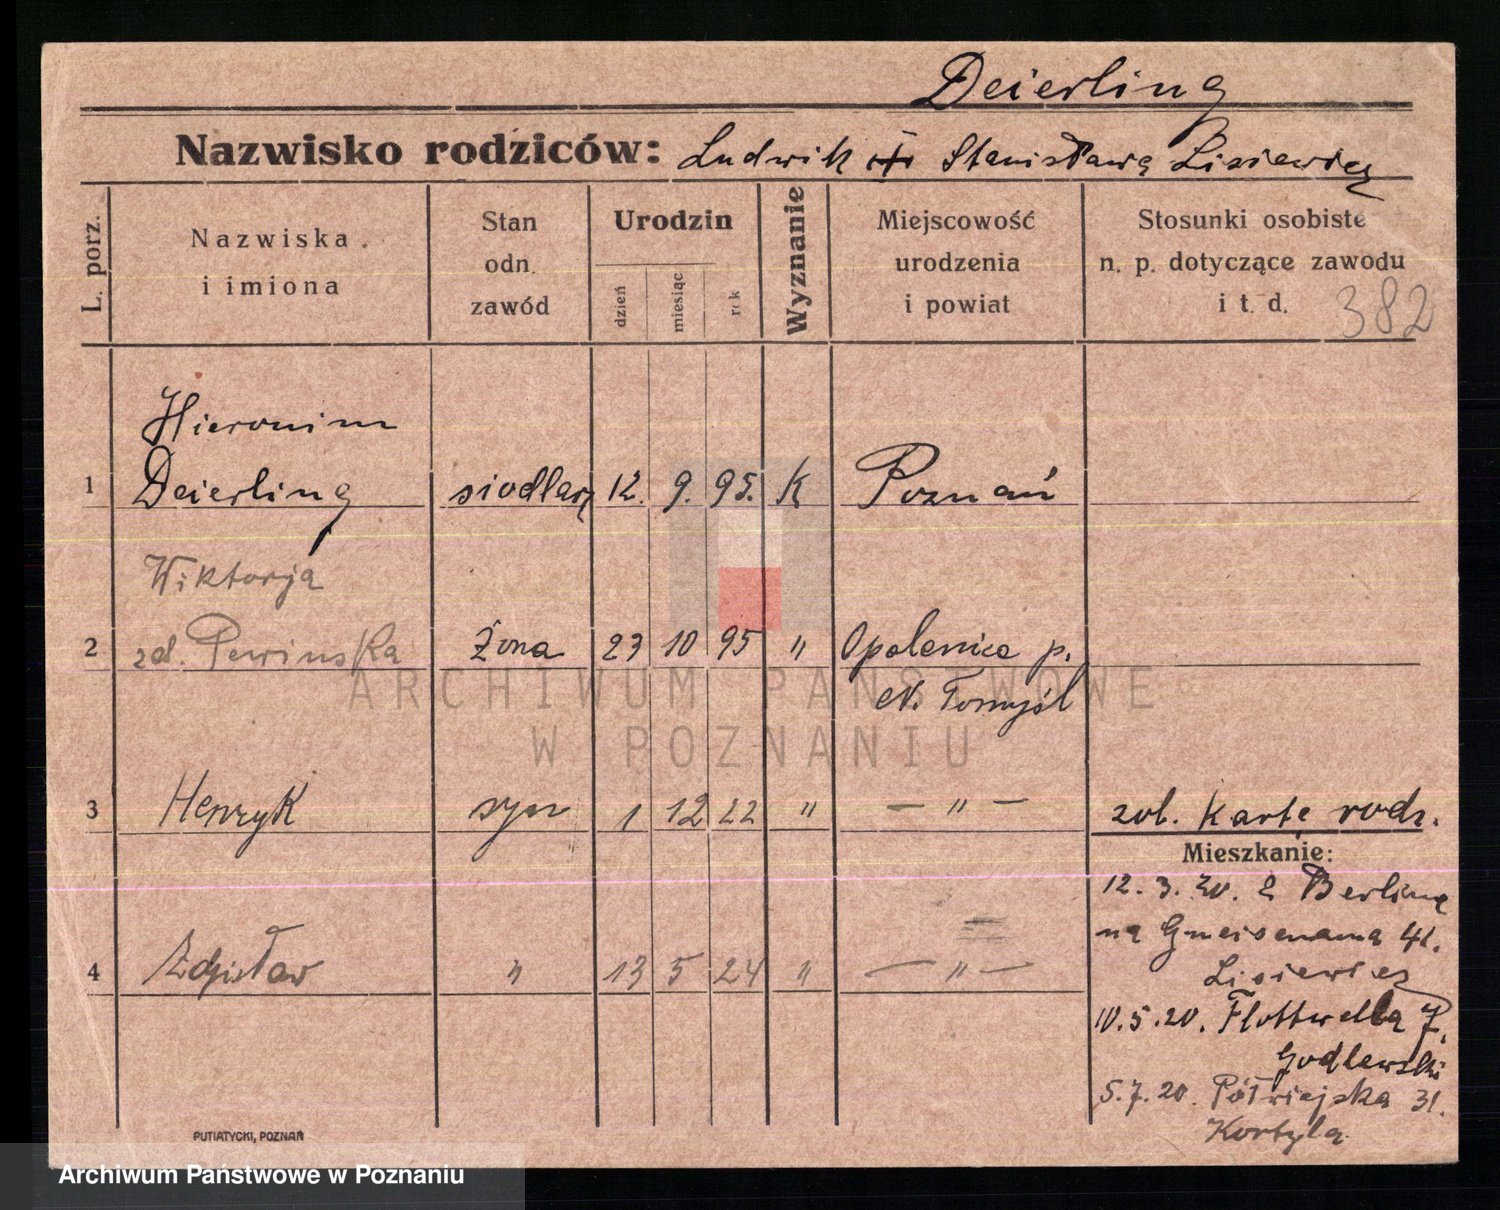 Deierling
Nazwisko rodziców: Ludwik Stanisława Lisiewicz
L. porz.
Nazwiska
i imiona
Stan
odn.
zawód
Urodzin
dzień
miesiąc
rok
Wyznanie
Miejscowość
urodzenia
i powiat
Stosunki osobiste
n. p. dotyczące zawodu
i t. d.
382
Hieronim
1 Deierling siodlarz 12. 9. 95. K Poznań
Wiktorja
2 Żona 23 10 95 " Opalenica p.
N. Tomyśl
3 Henryk syn 1 12 22 " — " — zob. Kartę rodz.
Mieszkanie:
12. 3. 20. z Berlina
na Gneisenaua 41.
Lisiewicz
4 Zdzisław " 13 5 24 " — " —
10.5.20. Flottwella 7.
Godlewski
5.7.20. Półwiejska 31.
Kortyla
PUTIATYCKI, POZNAŃ
ARCHIWUM PAŃSTWOWE
W POZNANIU
Archiwum Państwowe w Poznaniu